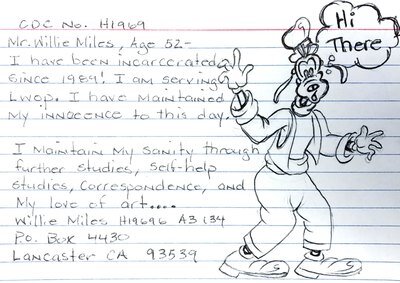 CDC No. H1969
Mr. Willie Miles, Age 52-
I have been incarcerated
Since 1989! I am serving
Lwop. I have maintained
My innocence to this day.
I Maintain My Sanity through
further Studies, Self-help
Studies, Correspondence, and
My love of art....
Willie Miles H19696 A3 134
P.O. Box 4430
Lancaster CA 93539
Hi
There